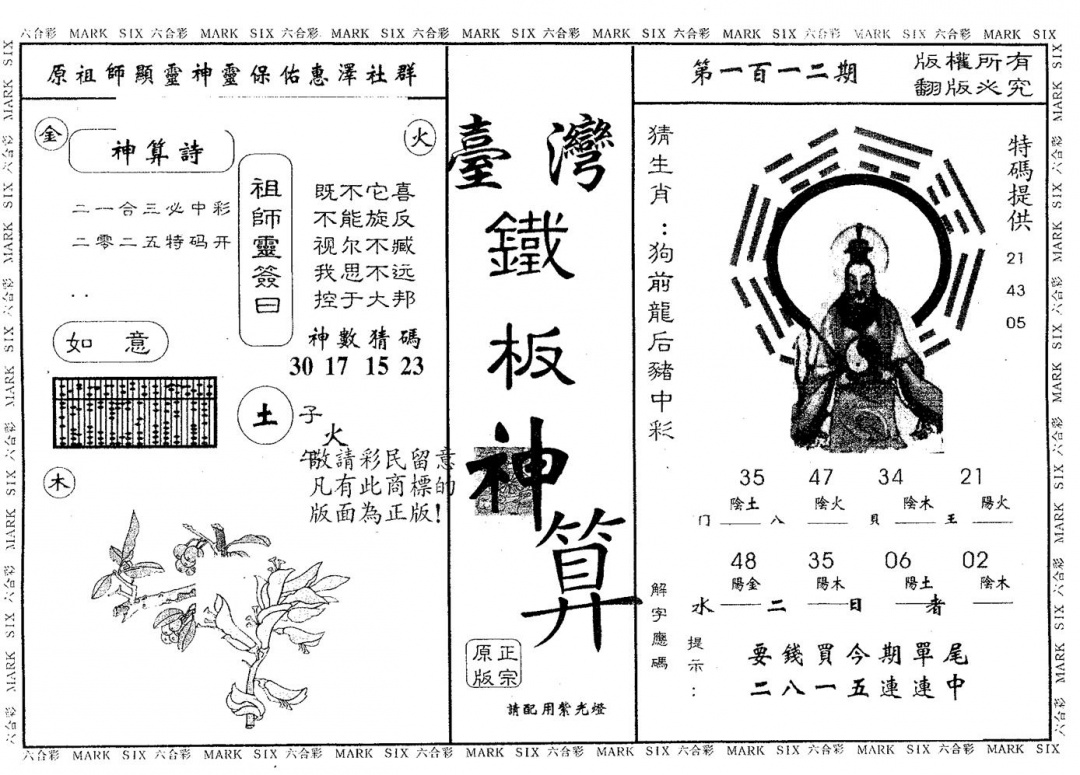 六合彩 MARK SIX 六合彩 MARK SIX 六合彩 MARK SIX 六合彩 MARK SIX 六合彩 MARK SIX 六合彩 MARK SIX 六合彩 MARK SIX 六合彩 MARK SIX
原祖師顯靈神靈保佑惠澤社群
金
神算詩
火
二一合三必中彩
二零二五特码开
..
祖師靈簽曰
既不它喜
不能旋反
视尔不臧
我思不远
控于大邦
如意
神數猜碼
30 17 15 23
土
子
火
午
敬請彩民留意
凡有此商標的
版面為正版!
木
臺灣
鐵
板
神
算
正宗
原版
請配用紫光燈
第一百一二期
版權所有
翻版必究
猜生肖:狗前龍后豬中彩
特碼提供
21
43
05
35 47 34 21
陰土 陰火 陰木 陽火
门 八 貝 王
48 35 06 02
陽金 陽木 陽土 陰木
水 二 日 者
解字應碼
提示:
要錢買今期單尾
二八一五連連中
六合彩 MARK SIX 六合彩 MARK SIX 六合彩 MARK SIX 六合彩 MARK SIX 六合彩 MARK SIX 六合彩 MARK SIX 六合彩 MARK SIX 六合彩 MARK SIX